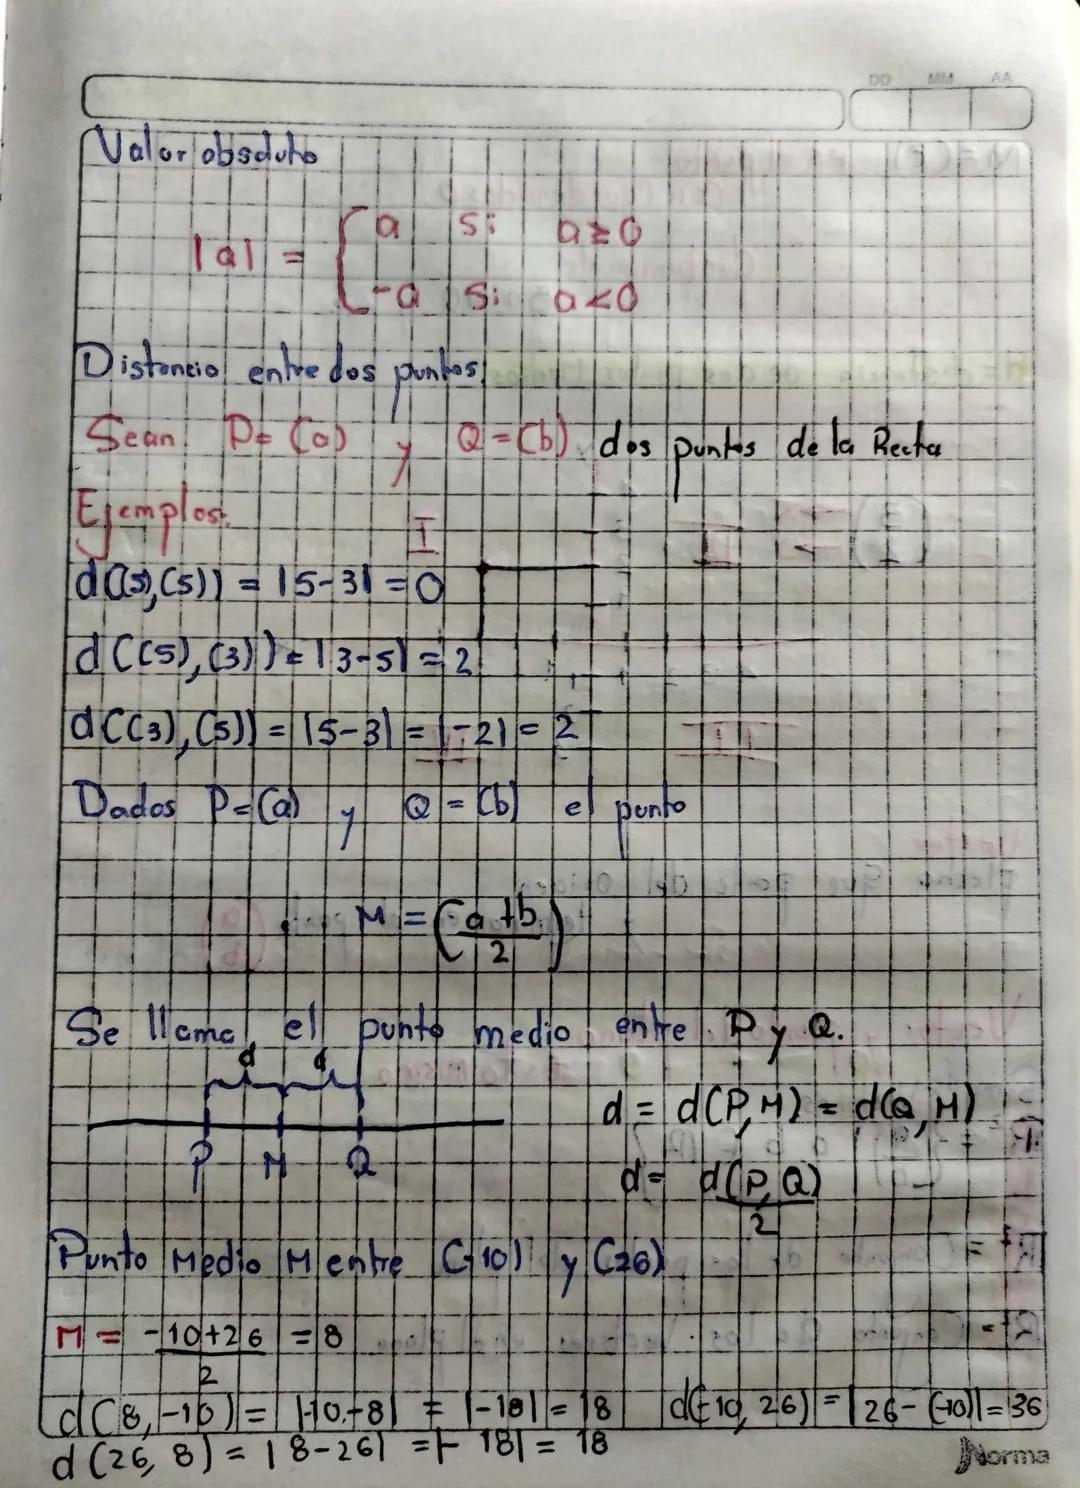 DD MM AA
Valor absoluto
|a| = { a si a ≥ 0
-a si a < 0
Distancia entre dos puntos
Sean P= (a) y Q = (b) dos puntos de la Recta
Ejemplos:
I
d((5),(5)) = |5-3| = 0
d((5),(3)) = |3-5| = 2
d((3),(5)) = |5-3| = |-2| = 2
Dados P=(a) y Q = (b) el punto
M = (a+b/2)
Se llama el punto medio entre P y Q.
d d
P M Q
d = d(P,M) = d(Q,M)
d = d(P,Q)/2
Punto Medio M entre (-10) y (26)
M = -10+26/2 = 8
d(8,-10) = |-10-8| = |-18| = 18 d(-10,26) = |26-(-10)| = 36
d(26,8) = |8-26| = |-18| = 18
Norma